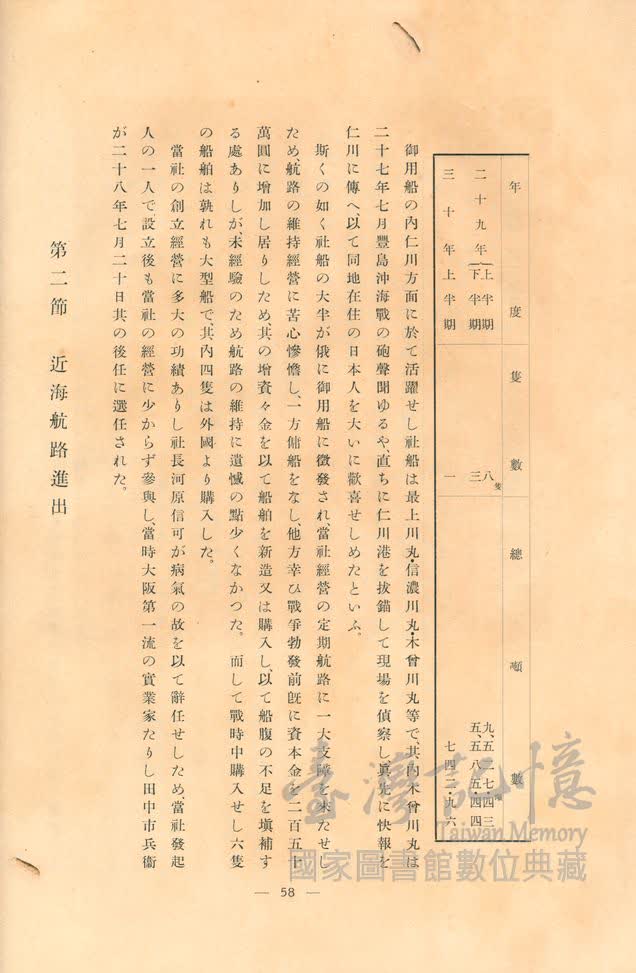 年度 隻數 總噸數
二十九年 上半期 八隻 九、五一七・四三噸
下半期 三 五、五八五・四四
三十年上半期 一 七四二・九六
御用船の內仁川方面に於て活躍せし社船は最上川丸・信濃川丸・木曾川丸等で、其內木曾川丸は
二十七年七月豐島沖海戰の砲聲聞ゆるや、直ちに仁川港を拔錨して現場を偵察し、眞先に快報を
仁川に傳へ、以て同地在住の日本人を大いに歡喜せしめたといふ。
斯くの如く社船の大半が俄に御用船に徵發され、當社經營の定期航路に一大支障を來たせし
ため、航路の維持經營に苦心慘憺し、一方傭船をなし、他方幸ひ戰爭勃發前旣に資本金を二百五十
萬圓に增加し居りしため、其の增資々金を以て船舶を新造又は購入し、以て船腹の不足を塡補す
る處ありしが、未經驗のため航路の維持に遺憾の點少くなかつた。而して戰時中購入せし六隻
の船舶は孰れも大型船で、其內四隻は外國より購入した。
當社の創立經營に多大の功績ありし社長河原信可が病氣の故を以て辭任せしため、當社發起
人の一人で、設立後も當社の經營に少からず參與し、當時大阪第一流の實業家たりし田中市兵衞
が二十八年七月二十日其の後任に選任された。
第二節 近海航路進出
— 58 —
臺灣記憶
Taiwan Memory
國家圖書館數位典藏